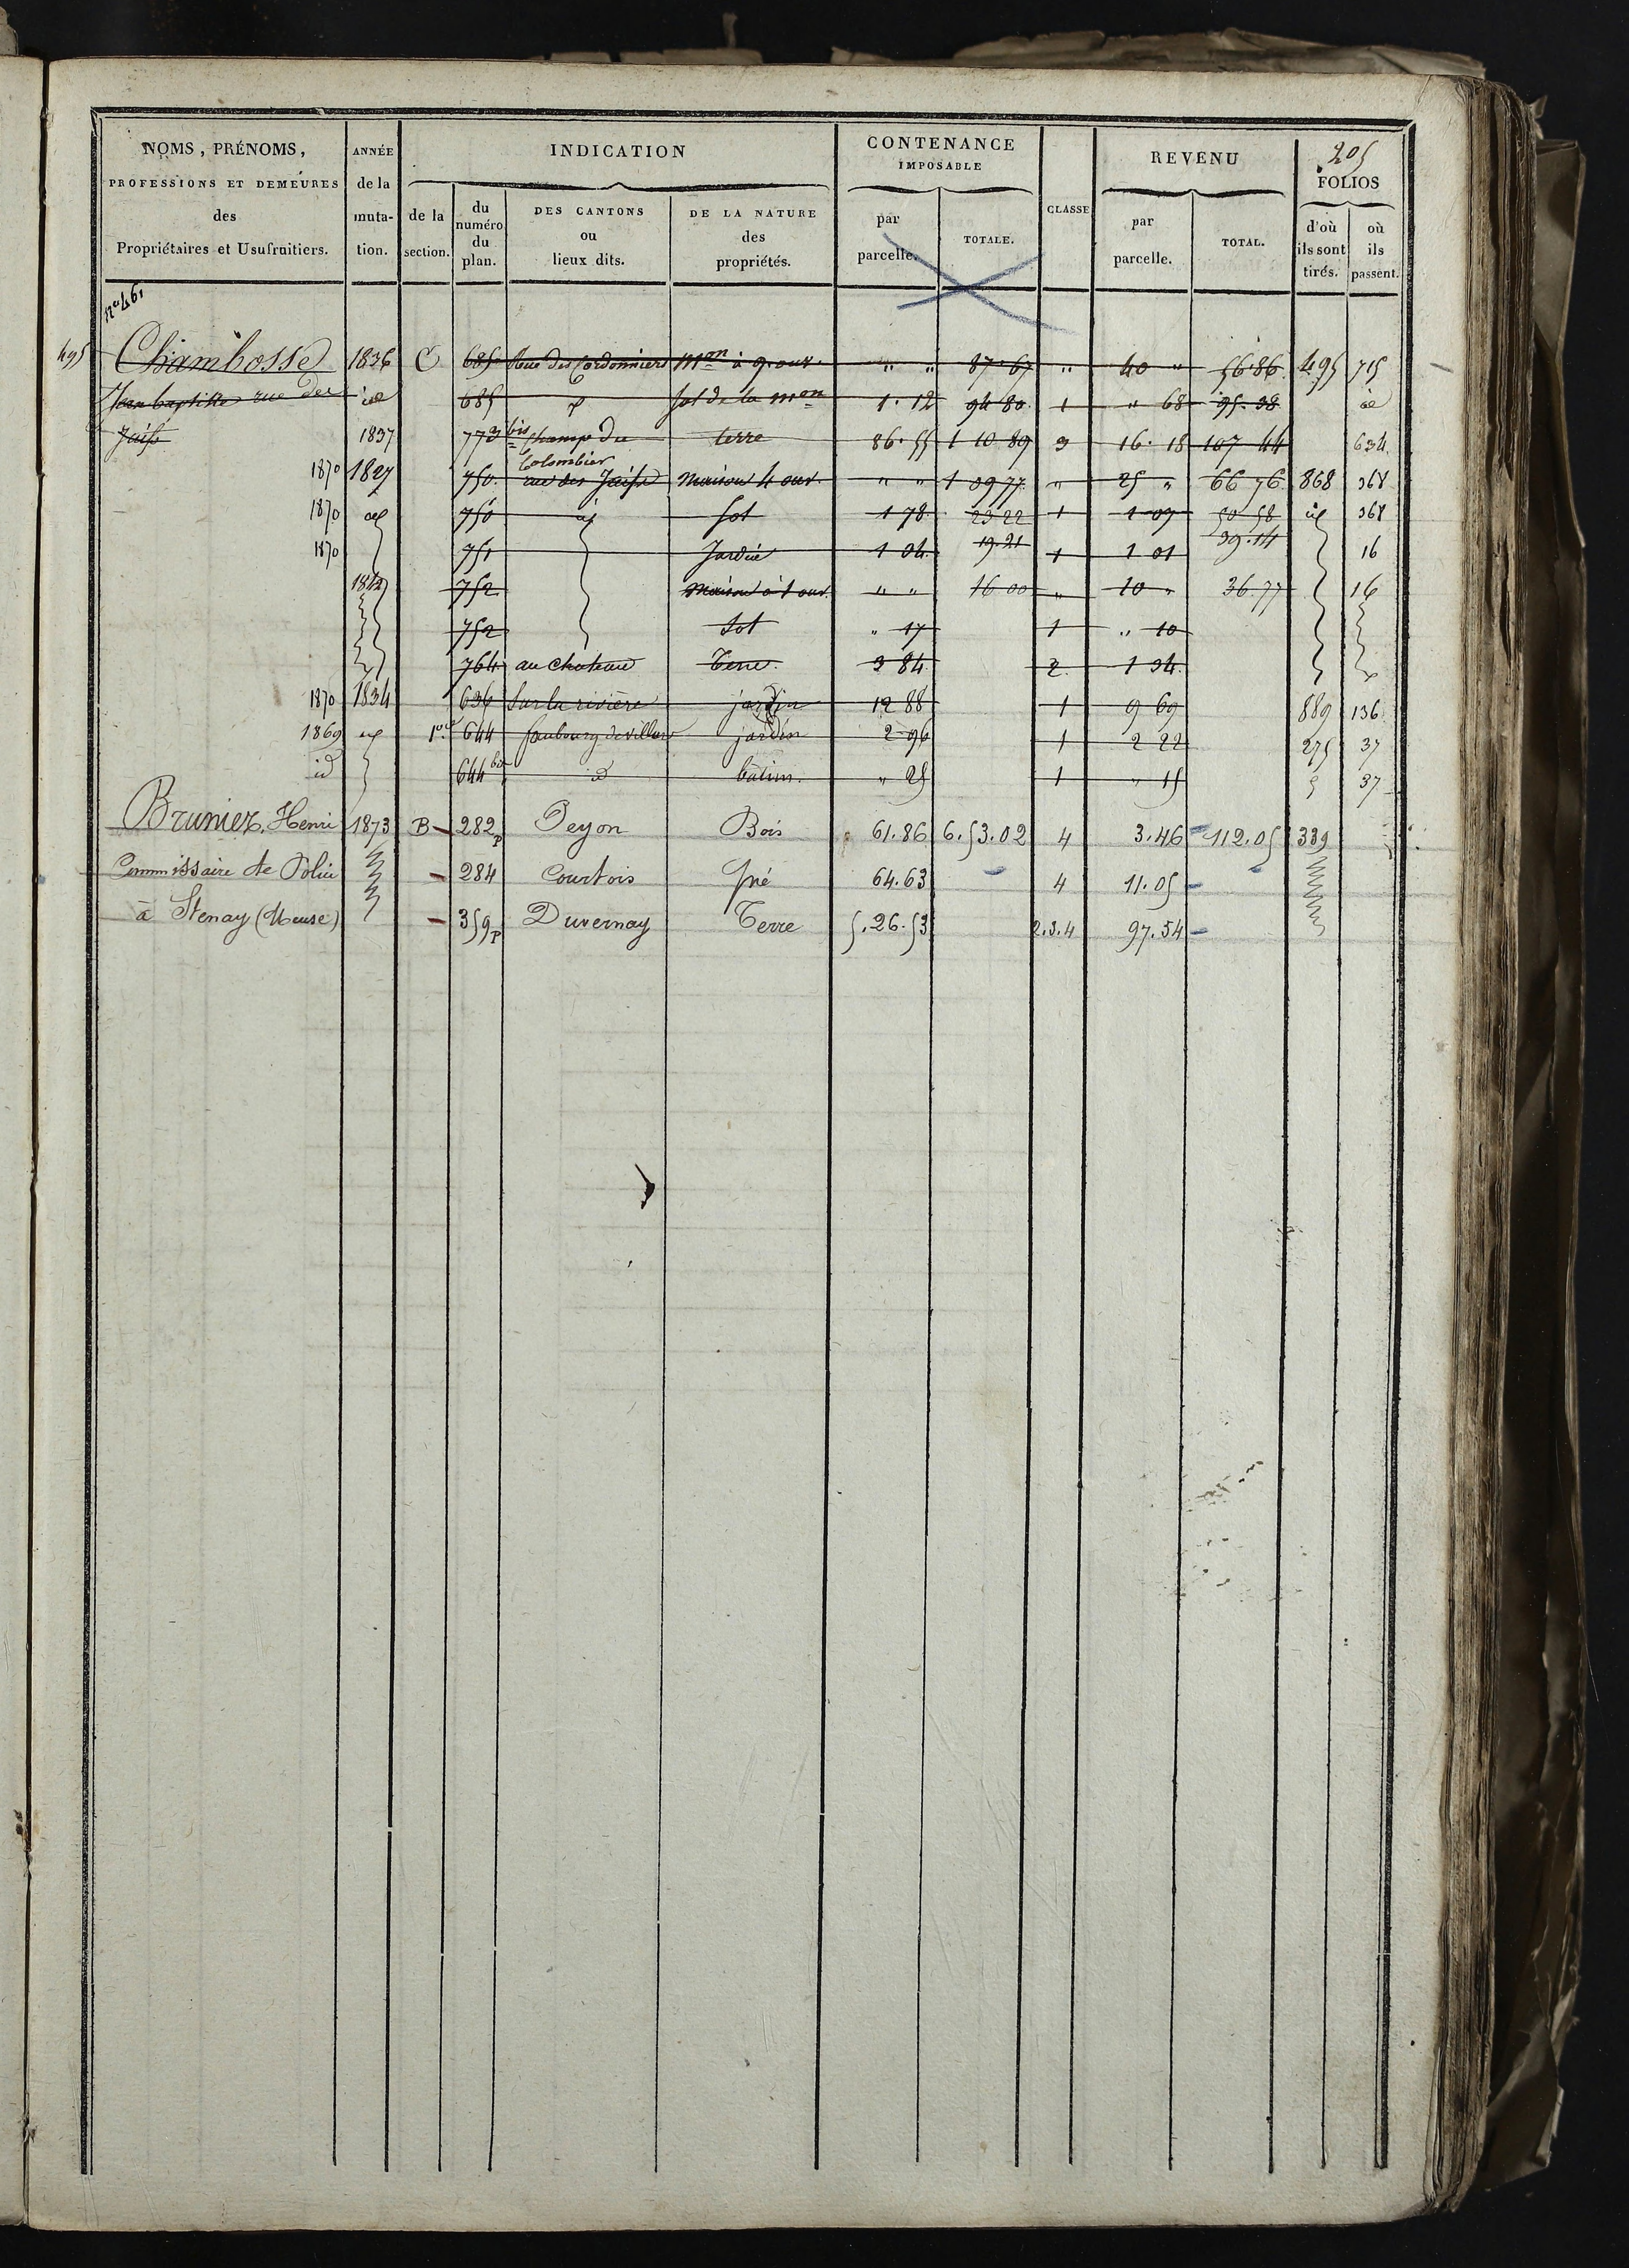 205
NOMS, PRÉNOMS, ANNÉE INDICATION CONTENANCE IMPOSABLE CLASSE REVENU FOLIOS
PROFESSIONS ET DEMEURES des Propriétaires et Usufruitiers. de la mutation. de la section. du numéro du plan. DES CANTONS ou lieux dits. DE LA NATURE des propriétés. par parcelle. TOTALE. par parcelle. TOTAL. d'où ils sont tirés. où ils passent.
n° 461
495 Chambosse 1836 C 685 Rue des Cordonniers mon à 9. our. " " 87.67 " 40 " 56.86 495 715
Jean baptiste rue des id 685 id Sol de la mon 1.12 94 80 1 " 68 95.38 id
Juifs 1837 773 bis Champ du Colombier terre 86.55 1 10 89 3 16.18 107 44 634
1870 1827 750 rue des Juifs Maison 4 our. " " 1 09 77 " 25 " 66 76 868 368
1870 id 750 id Sol 1 78 23 22 1 1 07 50 58 id 368
1870 751 Jardin 1 04 19.21 1 1 01 39.14 16
1842 752 Maison à 1 our. " " 16 00 " 10 " 36.77 16
752 Sol " 17 1 " 10
764 au chateau Terre 3 84 2 1 34
1870 1834 636 Sur la rivière jardin 12 88 1 9 69 889 136
1869 id 644 faubourg de villars jardin 2 96 1 2 22 275 37
id 644 bis id batim. " 25 1 " 15 37
Brunier, Henri 1873 B 282p Peyon Bois 61.86 6.53.02 4 3.46 112.05 339
Commissaire de Police 284 Courtois Pré 64.63 4 11.05
à Stenay (Meuse) 359p Duvernay Terre 5.26.53 2.3.4 97.54